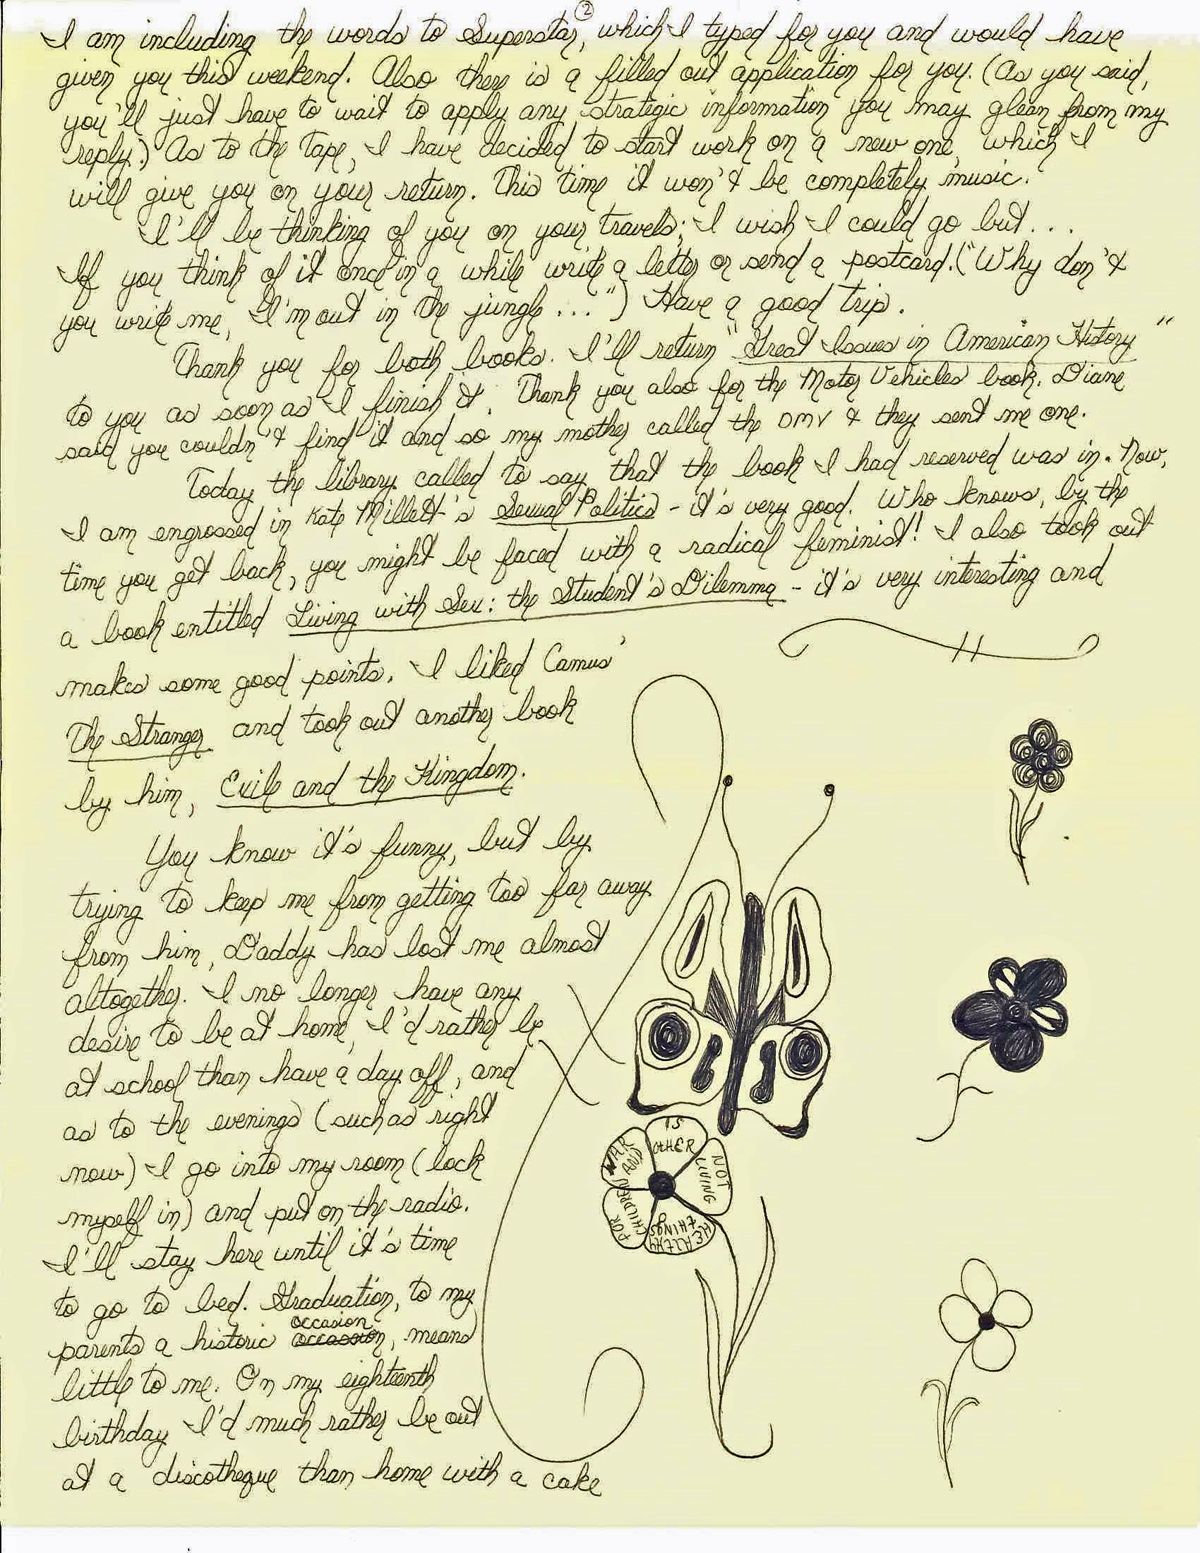 ②
I am including the words to Superstar, which I typed for you and would have
given you this weekend. Also there is a filled out application for you. (As you said,
you'll just have to wait to apply any strategic information you may glean from my
reply.) As to the Tape, I have decided to start work on a new one, which I
will give you on your return. This time it won't be completely music.
I'll be thinking of you on your travels; I wish I could go but...
If you think of it once in a while write a letter or send a postcard. ("Why don't
you write me, I'm out in the jungle...") Have a good trip.
Thank you for both books. I'll return "Great Issues in American History"
to you as soon as I finish it. Thank you also for the Motor Vehicles book. Diane
said you couldn't find it and so my mother called the DMV & they sent me one.
Today the library called to say that the book I had reserved was in. Now,
I am engrossed in Kate Millett's Sexual Politics - it's very good. Who knows, by the
time you get back, you might be faced with a radical feminist! I also took out
a book entitled Living with Sex: the Student's Dilemma - it's very interesting and
makes some good points. I liked Camus'
The Stranger and took out another book
by him, Exile and the Kingdom.
You know it's funny, but by
trying to keep me from getting too far away
from him, Daddy has lost me almost
altogether. I no longer have any
desire to be at home, I'd rather be
at school than have a day off, and
as to the evenings (such as right
now) I go into my room (lock
myself in) and put on the radio.
I'll stay here until it's time
to go to bed. Graduation, to my
occasion
parents a historic occassion, means
little to me. On my eighteenth
birthday I'd much rather be out
at a discotheque than home with a cake
WAR AND
IS
OTHER
NOT
LIVING
HEALTHY
THINGS
FOR
CHILDREN